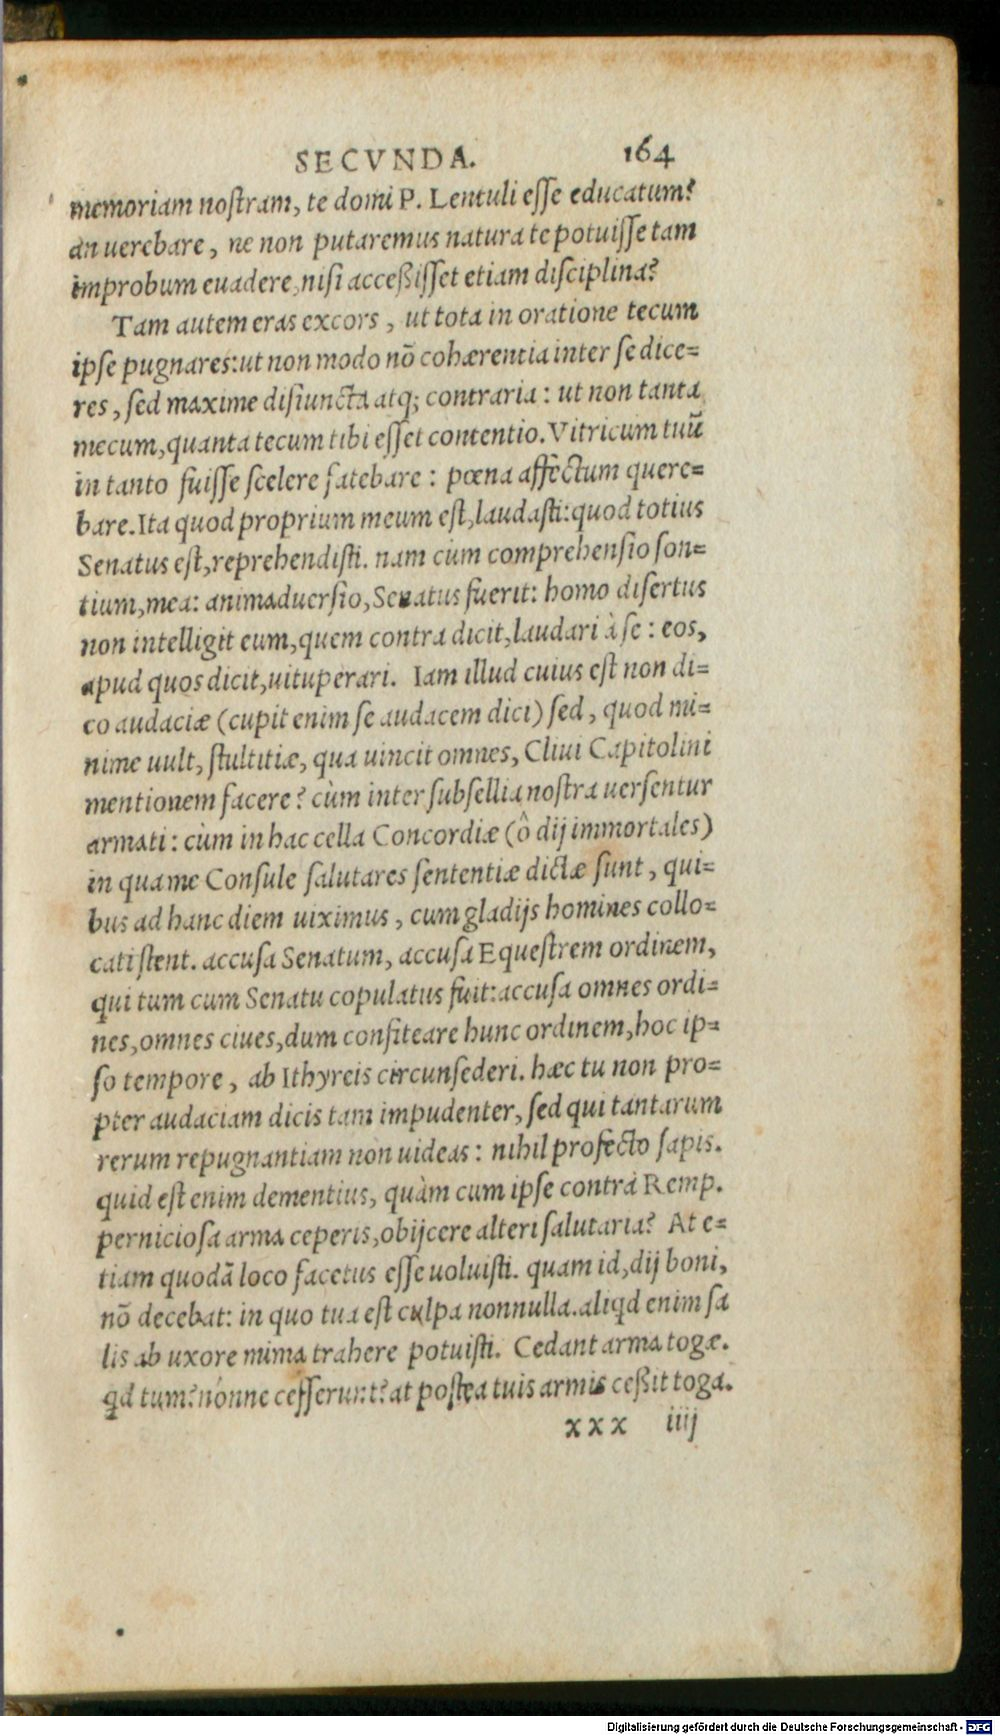 SECVNDA. 164
memoriam noſtram, te domi P. Lentuli eſſe educatum?
an uerebare, ne non putaremus natura te potuiſſe tam
improbum euadere, niſi acceßiſſet etiam diſciplina?
Tam autem eras excors, ut tota in oratione tecum
ipſe pugnares: ut non modo nō cohærentia inter ſe dice=
res, ſed maxime diſiuncta atq; contraria: ut non tanta
mecum, quanta tecum tibi eſſet contentio. Vitricum tuū
in tanto fuiſſe ſcelere fatebare: pœna affectum quere=
bare. Ita quod proprium meum eſt, laudaſti: quod totius
Senatus eſt, reprehendiſti. nam cùm comprehenſio ſon=
tium, mea: animaduerſio, Senatus fuerit: homo diſertus
non intelligit eum, quem contra dicit, laudari à ſe: eos,
apud quos dicit, uituperari. Iam illud cuius eſt non di=
co audaciæ (cupit enim ſe audacem dici) ſed, quod mi=
nime uult, ſtultitiæ, qua uincit omnes, Cliui Capitolini
mentionem facere? cùm inter ſubſellia noſtra uerſentur
armati: cùm in hac cella Concordiæ (ô dij immortales)
in qua me Conſule ſalutares ſententiæ dictæ ſunt, qui=
bus ad hanc diem uiximus, cum gladijs homines collo=
cati ſtent. accuſa Senatum, accuſa Equeſtrem ordinem,
qui tum cum Senatu copulatus fuit: accuſa omnes ordi=
nes, omnes ciues, dum confiteare hunc ordinem, hoc ip=
ſo tempore, ab Ithyreis circunſederi. hæc tu non pro=
pter audaciam dicis tam impudenter, ſed qui tantarum
rerum repugnantiam non uideas: nihil profecto ſapis.
quid eſt enim dementius, quàm cum ipſe contra Remp.
pernicioſa arma ceperis, obijcere alteri ſalutaria? At e=
tiam quodã loco facetus eſſe uoluiſti. quam id, dij boni,
nō decebat: in quo tua eſt culpa nonnulla. aliqd enim ſa
lis ab uxore mima trahere potuiſti. Cedant arma togæ.
qd tum? nónne ceſſerunt? at poſtea tuis armis ceßit toga.
xxx iiij
Digitalisierung gefördert durch die Deutsche Forschungsgemeinschaft - DFG